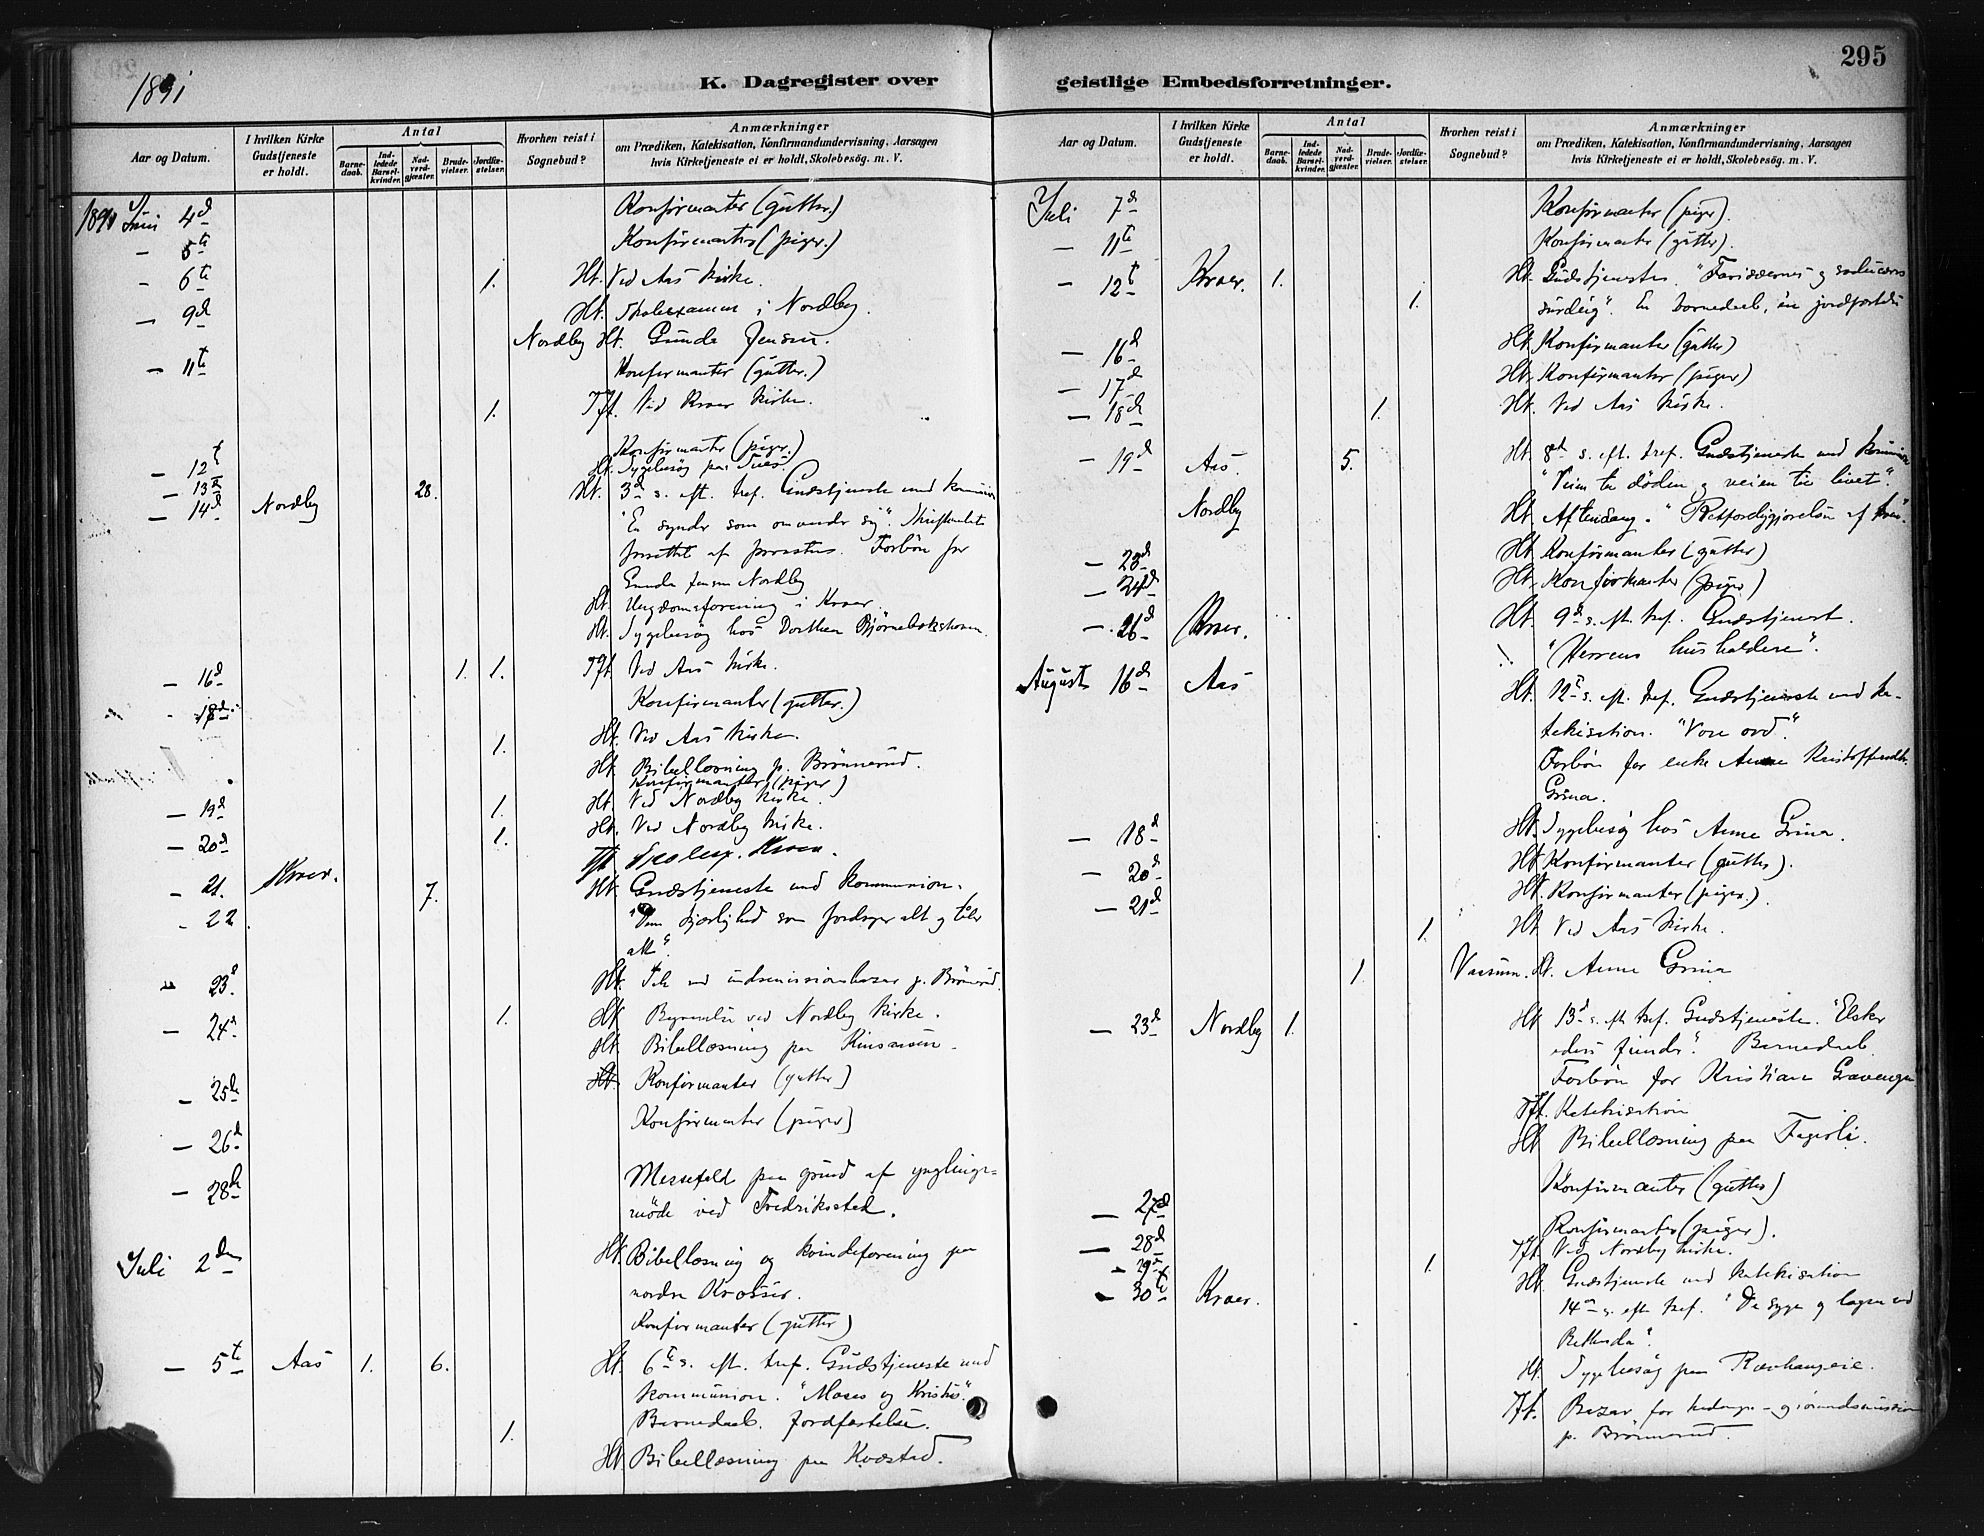 295
1891
K. Dagregister over geistlige Embedsforretninger.
Aar og Datum.
I hvilken Kirke Gudstjeneste er holdt.
Antal
Barne-daab.
Ind-ledede Barsel-kvinder.
Nad-verd-gjæster.
Brude-vielser.
Jordfæ-stelser.
Hvorhen reist i Sognebud?
Anmærkninger
om Prædiken, Katekisation, Konfirmandundervisning, Aarsagen
hvis Kirketjeneste ei er holdt, Skolebesög. m. V.
1891 Juni 4d Konfirmanter (gutter.)
- 5te Konfirmanter (piger.)
- 6te 1. Ht. Ved Aas kirke.
- 9d Ht. Skoleexamen i Nordby.
Nordby Ht. Gunda Jensen.
- 11te Konfirmanter (gutter.)
1. Tft. Ved Kroer kirke.
- 12t Konfirmanter (piger.)
- 13d Ht. Sygebesøg paa
- 14d Nordby 28. Ht. 3d s. eft. tref. Gudstjeneste med kommunion
"En synder som omvender sig". Skriftemalet
forrettet af provsten. Forbøn for
Gunda Jensen Nordby
Ht. Ungdomsforening i Kroer.
Ht. Sygebesög hos Dorthea
- 16d 1. 1. Tft. Ved Aas kirke.
- 18d Konfirmanter (gutter.)
1. Ht. Ved Aas kirke.
Ht. Bibellæsning p. Brönnerud.
Konfirmanter (piger)
- 19d 1. Ht. Ved Nordby kirke.
- 20d 1. Ht. Ved Nordby kirke.
Tft. Skolex. Kroer.
- 21. Kroer. 7. Ht. Gudstjeneste med kommunion.
- 22 "Den kjærlighed som fordrager alt og tåler
alt".
- 23d Ht. Tale ved indremissionsbasar p. Brönnerud.
- 24d 1. Ht. Begravelse ved Nordby kirke.
Ht. Bibellæsning paa
- 25de Ht. Konfirmanter (gutter)
- 26d Konfirmanter (piger)
- 28de Messefald paa grund af ynglinge-
möde ved Fredriksstad.
Juli 2den Ht. Bibellæsning og kvindeforening paa
nordre Krosser.
Konfirmanter (gutter)
- 5t Aas 1. 6. Ht. 6te s. eft. tref. Gudstjeneste med
kommunion. "Moses og Kristus".
1. Barnedaab. Jordfæstelse.
Ht. Bibellæsning paa Kvæstad.
Aar og Datum.
I hvilken Kirke Gudstjeneste er holdt.
Antal
Barne-daab.
Ind-ledede Barsel-kvinder.
Nad-verd-gjæster.
Brude-vielser.
Jordfæ-stelser.
Hvorhen reist i Sognebud?
Anmærkninger
om Prædiken, Katekisation, Konfirmandundervisning, Aarsagen
hvis Kirketjeneste ei er holdt, Skolebesög. m. V.
Juli 7d Konfirmanter (piger).
- 11te Konfirmanter (gutter).
- 12t Kroer. 1. Ht. Gudstjeneste. "Farisæernes og saducæernes
1. surdeig". En barnedaab, én jordfæstelse
- 16d Ht. Konfirmanter (gutter)
- 17d Ht. Konfirmanter (piger)
- 18d 1. Ht. Ved Aas kirke.
- 19d Aas. 5. Ht. 8de s. eft. tref. Gudstjeneste med kommunion
"Veien til döden og veien til livet".
Nordby Ht. Aftensang. "Retfærdiggjørelse af troen".
- 23d Ht. Konfirmanter (gutter)
- 24d Ht. Konfirmanter (piger)
- 26d Kroer. Ht. 9de s. eft. tref. Gudstjeneste.
"Herrens husholdere".
August 16d Aas Ht. 12te s. eft. tref. Gudstjeneste med ka-
tekisation. "Vore ord".
Forbön for enke Anne Kristoffersdtr.
Grina.
- 18d Ht. Sygebesøg hos Anne Grina.
- 20d Ht. Konfirmanter (gutter).
- 21d Ht. Konfirmanter (piger).
1. Ht. Ved Aas kirke.
1. Ht. Anne Grina
- 23d Nordby 1. Ht. 13d s. eft. tref. Gudstjeneste. "Elsker
eders fiender". Barnedaab.
Forbön for Kristian
Tft. Katekisation
Ht. Bibellæsning paa Fagerli.
- 27d Konfirmanter (gutter)
- 28d Konfirmanter (piger).
- 29d 1. Tft. Ved Nordby kirke.
- 30te Kroer. Ht. Gudstjeneste med katekisation
14de s. efter tref. "De syge og lægen ved
Bethesda".
Ht. Sygebesög paa
Tft. Bazar for hedninge- og indremission
p. Brönnerud.